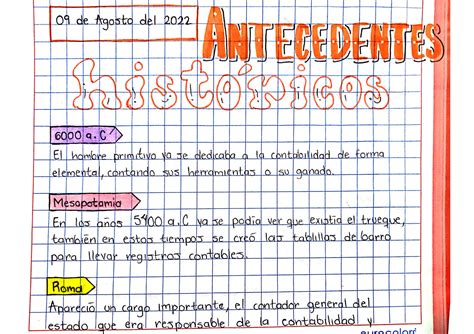 09 de Agosto del 2022
ANTECEDENTES
históricos
6000 a.C
El hombre primitivo ya se dedicaba a la contabilidad de forma
elemental, contando sus herramientas o su ganado.
Mesopotamia
En los años 5400 a.C ya se podía ver que existia el trueque,
también en estos tiempos se creó las tablillas de barro
para llevar registros contables.
Roma
Apareció un cargo importante, el contador general del
estado que era responsable de la contabilidad y
eurocolors